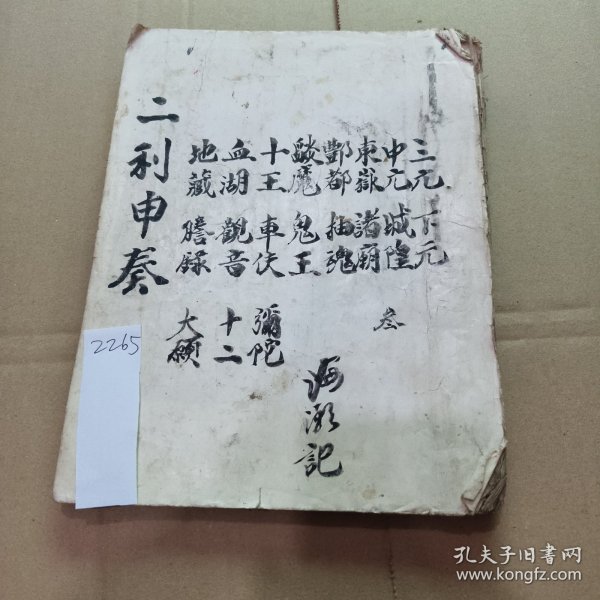 三元 下元
中元 城隍
東嶽 諸廟
酆都 抽魂
燄魔 鬼王
十王 車伕 彌陀
血湖 觀音 十二
地藏 謄錄 大願
叁
記
二利申奏
2265
孔夫子旧书网
www.kongfz.com